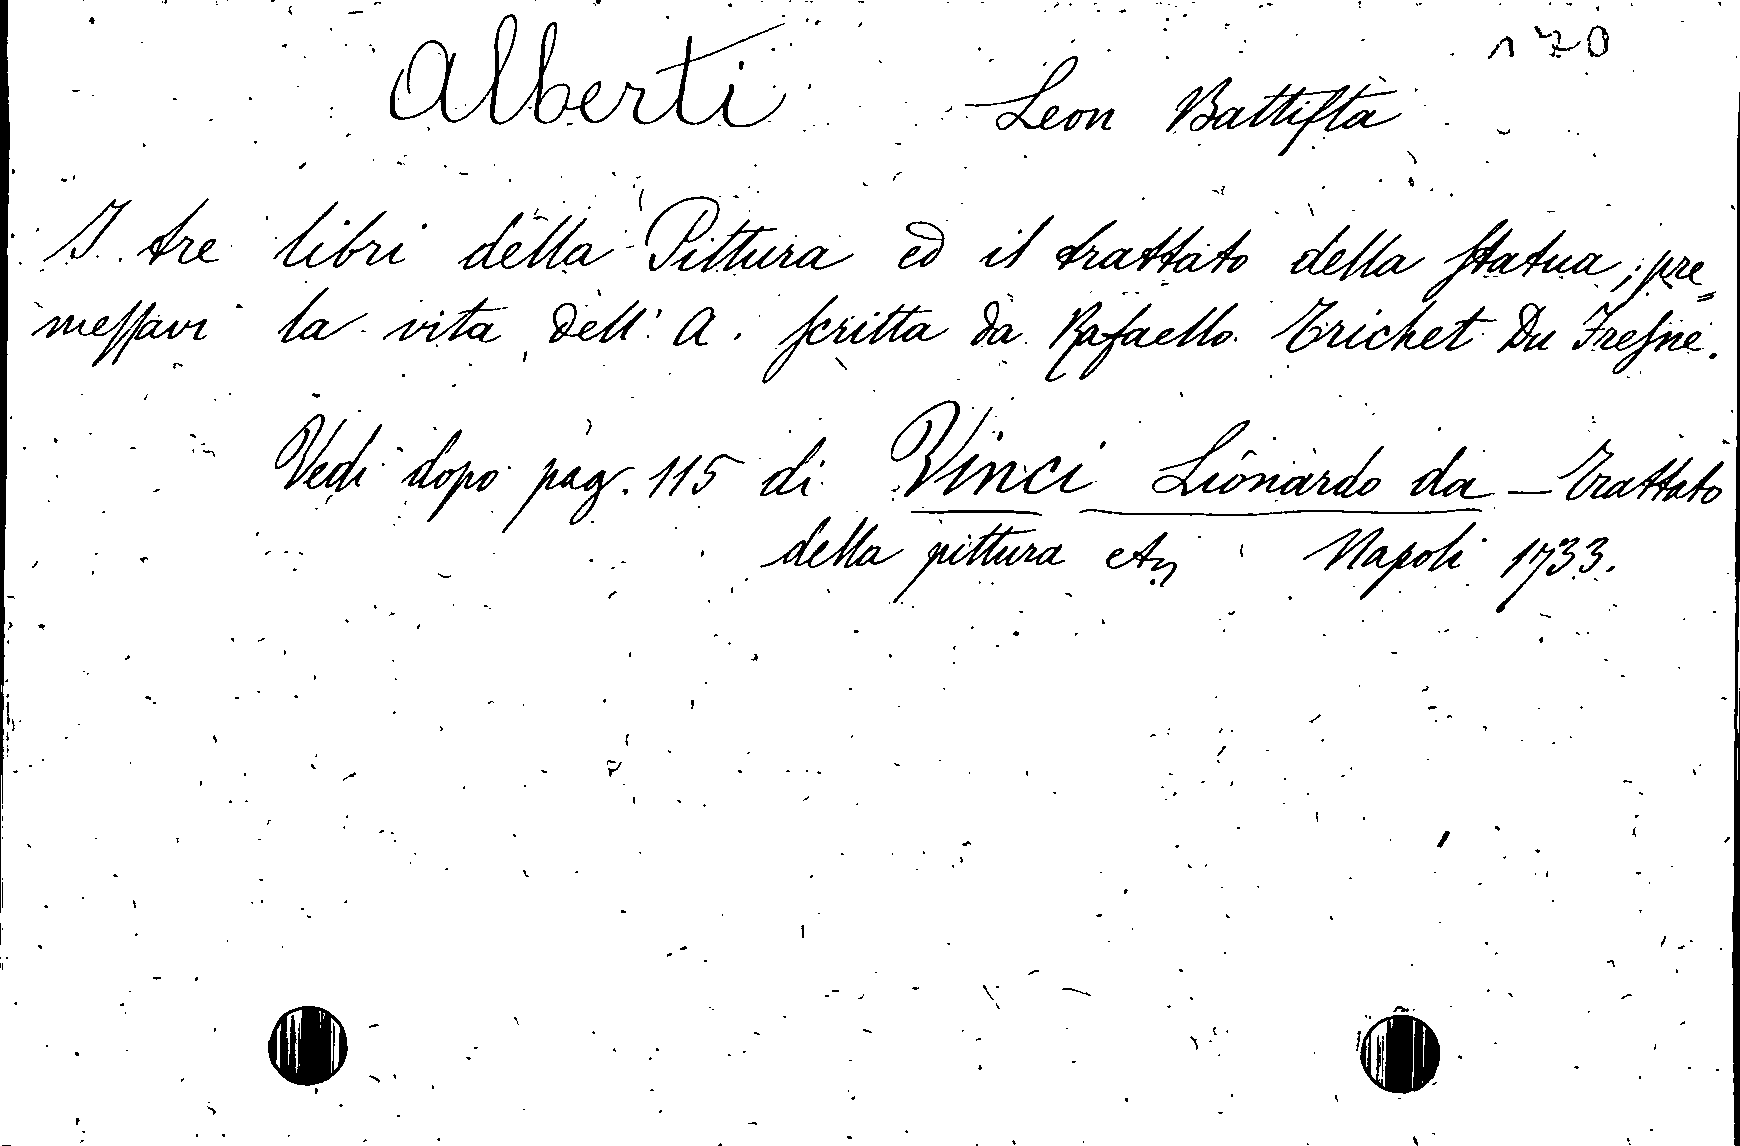 170
Alberti Leon Battista
I tre libri della Pittura ed il trattato della statua; pre=
messavi la vita dell'A. scritta da Rafaello Trichet Du Fresne.
Vedi dopo pag. 115 di Vinci Lionardo da — Trattato
della pittura etc Napoli 1733.